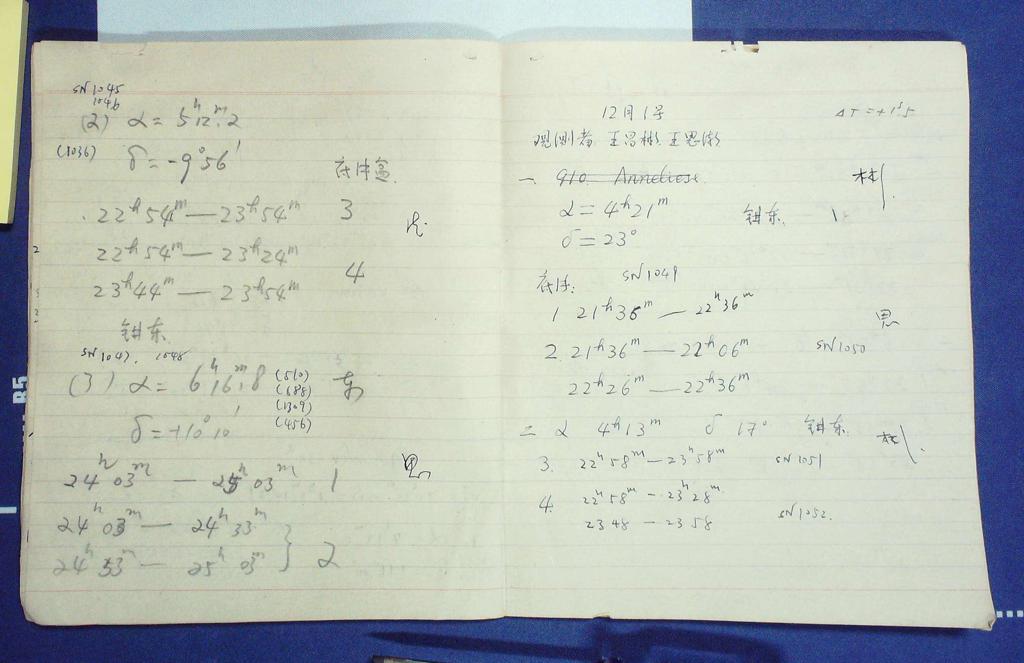 SN1045
1046
(2) α = 5ʰ12ᵐ.2
(1036) δ = -9°56′
底片盒
22ʰ54ᵐ — 23ʰ54ᵐ 3
22ʰ54ᵐ — 23ʰ24ᵐ
4
23ʰ44ᵐ — 23ʰ54ᵐ
钳东
SN1047, 1048
(3) α = 6ʰ16ᵐ.8 东
(510)
(688)
(1309)
(456)
δ = +10°10′
24ʰ03ᵐ — 25ʰ03ᵐ 1
思
24ʰ03ᵐ — 24ʰ33ᵐ
24ʰ53ᵐ — 25ʰ03ᵐ } 2
12月1号 ΔT = +1ˢ.5
观测者 王昌彬 王思潮
一 910. Anneliese. 彬
α = 4ʰ21ᵐ 钳东
δ = 23°
底片: SN1049
1 21ʰ36ᵐ — 22ʰ36ᵐ
思
2. 21ʰ36ᵐ — 22ʰ06ᵐ SN1050
22ʰ26ᵐ — 22ʰ36ᵐ
二 α 4ʰ13ᵐ δ 17° 钳东 彬
3. 22ʰ58ᵐ — 23ʰ58ᵐ SN1051
4. 22ʰ58ᵐ — 23ʰ28ᵐ
23 48 — 23 58 SN1052.